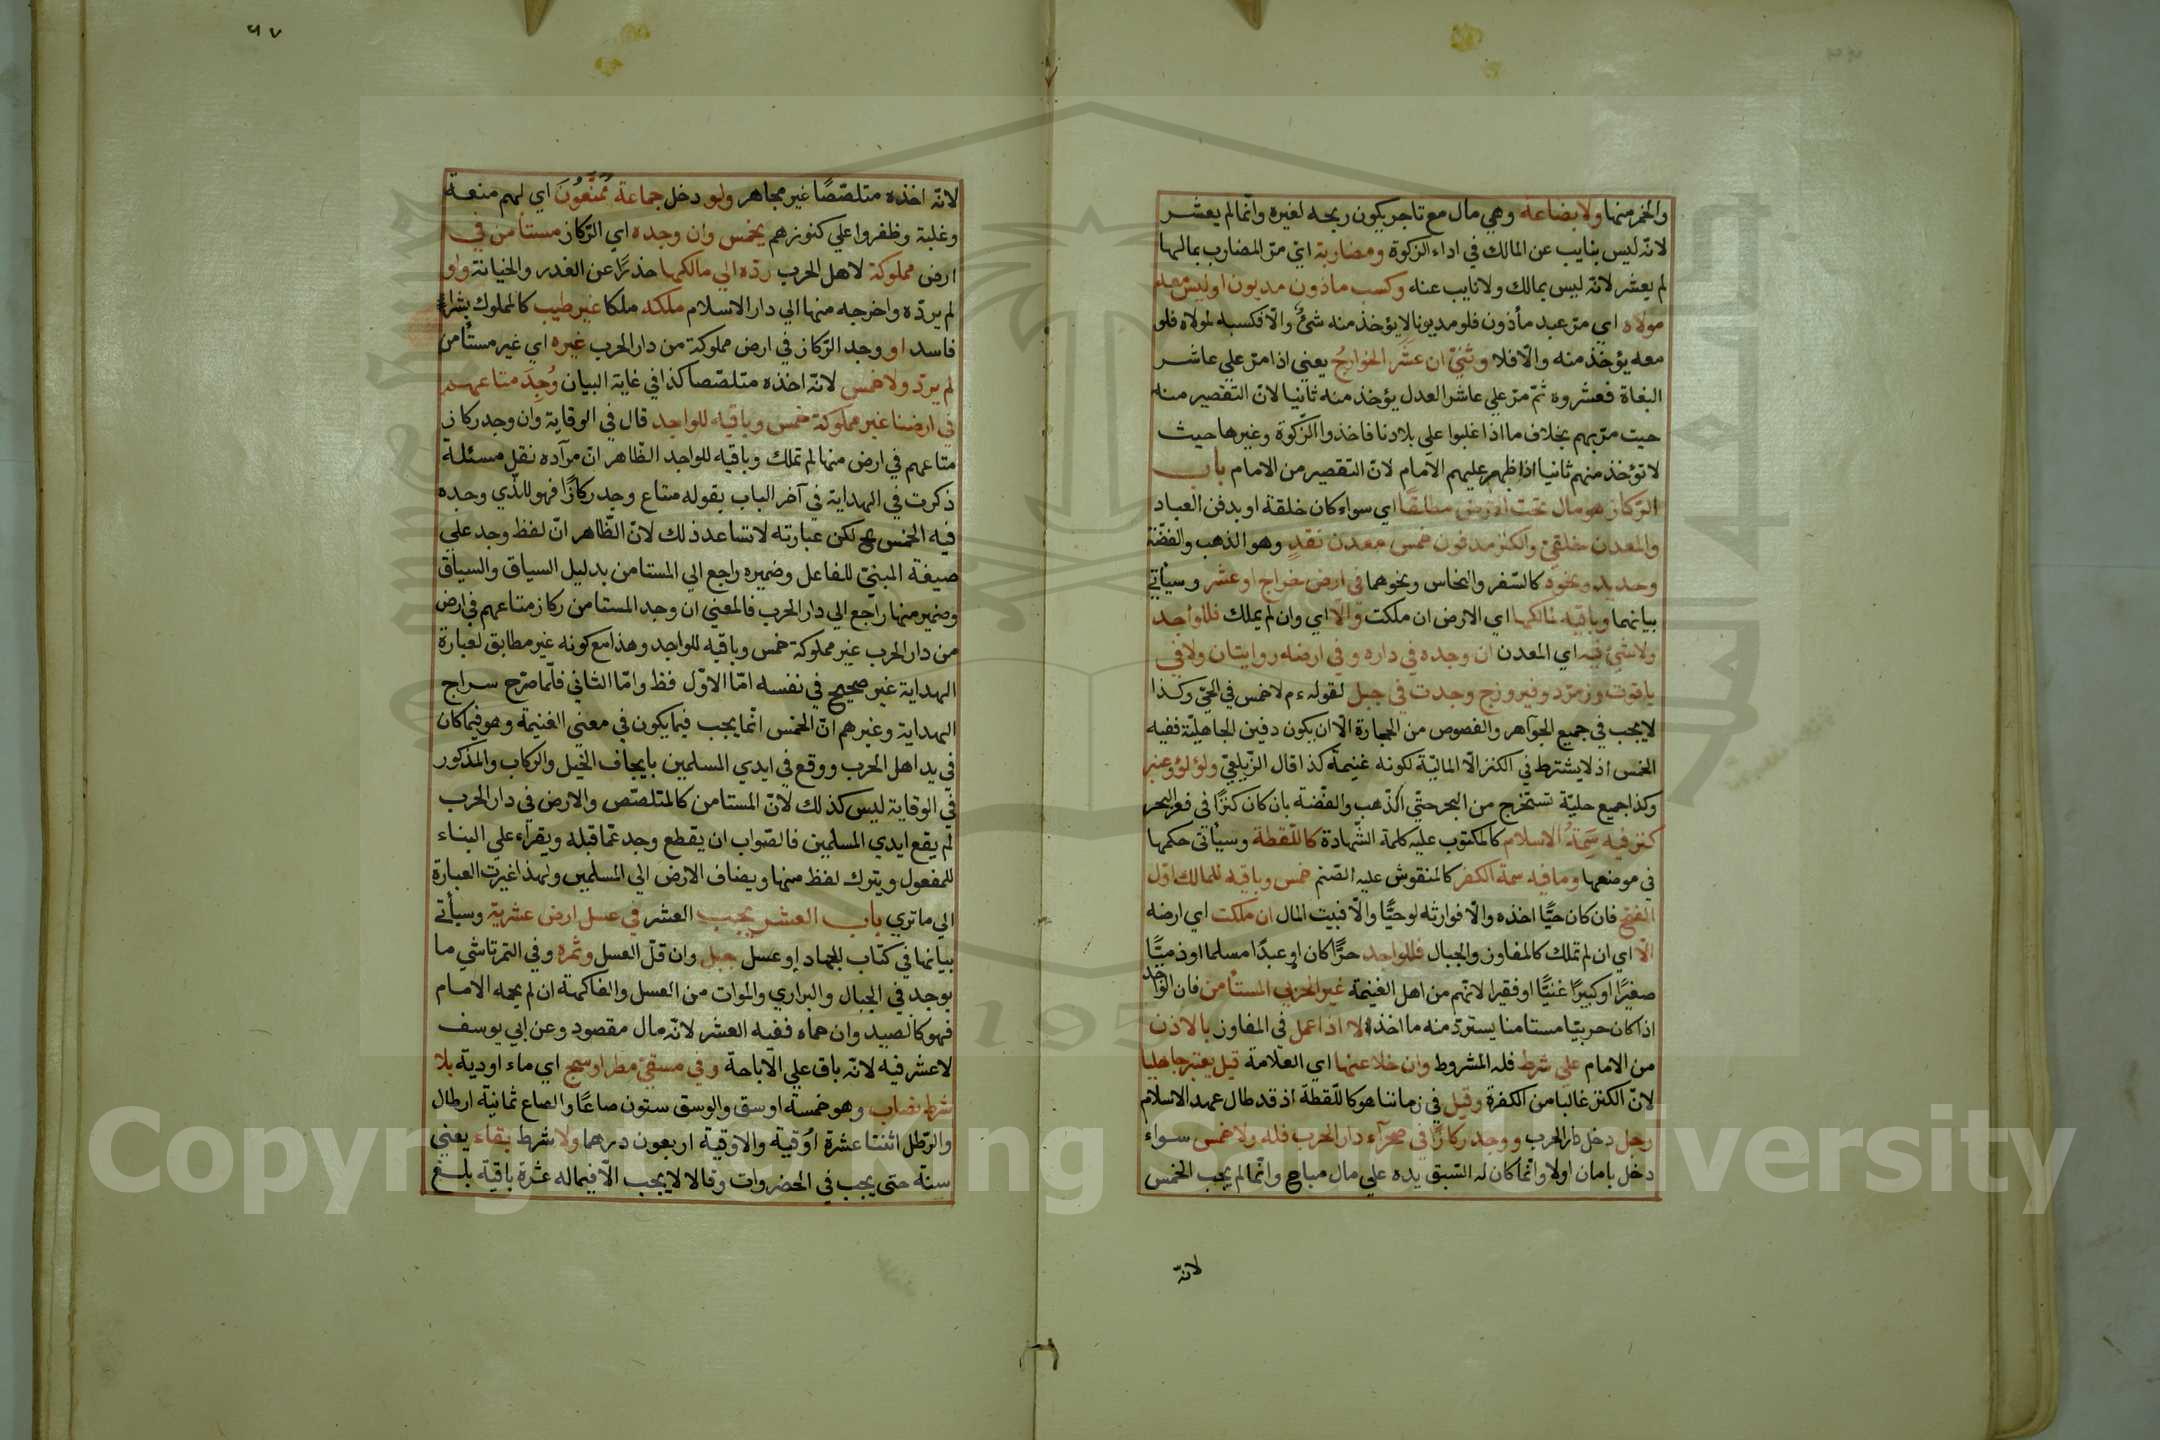 والخمر منها ولا بضاعة وهي مال مع تاجر يكون ربحه لغيره وانما لم يعشر
لانّه ليس بنايب عن المالك في اداء الزكوة ومضاربة اي مرّ المضارب بمالها
لم يعشر لانّه ليس بمالك ولا نايب عنه وكسب ماذون مديون او ليس معه
مولاه اي مرّ عبد مأذون فلو مديونا لا يؤخذ منه شئ والّا فكسبه لمولاه فلو
معه يؤخذ منه والّا فلا وثنّي ان عشّر الخوارج يعني اذا مرّ علي عاشر
البغاة فعشروه ثمّ مرّ علي عاشر العدل يؤخذ منه ثانيا لانّ التقصير منه
حيث مرّ بهم بخلاف ما اذا غلبوا علي بلادنا فاخذوا الزّكوة وغيرها حيث
لا تؤخذ منهم ثانيا اذا ظهر عليهم الامام لانّ التقصير من الامام باب
الرّكاز هو مال تحت ارض مطلقًا اي سواء كان خلقة او بدفن العباد
والمعدن خلقيّ والكنز مدفون خمس معدن نقدٍ وهو الذهب والفضّة
وحديد ونحوه كالصّفر والنحاس ونحوهما في ارض خراج او عشر وسيأتي
بيانهما وباقيه لمالكها اي الارض ان ملكت والّا اي وان لم يملك فللواجد
ولا شئ فيه اي المعدن ان وجده في داره وفي ارضه روايتان ولا في
ياقوت وزمرّد وفيروزج وجدت في جبل لقوله ءم لا خمس في الحجّ وكذا
لا يجب في جميع الجواهر والفصوص من الحجارة الّا ان يكون دفين الجاهليّة ففيه
الخمس اذ لا يشترط في الكنز الّا الماليّة لكونه غنيمة كذا قال الزّيلعيّ ولؤلؤ وعنبر
وكذا جميع حليّة تستخرج من البحر حتّي الذّهب والفضّة بان كان كنزًا في قعر البحر
كنز فيه سمة الاسلام كالمكتوب عليه كلمة الشّهادة كاللّقطة وسيأتي حكمها
في موضعها وما فيه سمة الكفر كالمنقوش عليه الصّنم خمس وباقيه للمالك اوّل
الفتح فان كان حيًّا اخذه والّا فوارثه لو حيًّا والّا فبيت المال ان ملكت اي ارضه
الّا اي ان لم تملك كالمفاوز والجبال فللواجد حرًّا كان او عبدًا مسلما او ذميًّا
صغيرًا او كبيرًا غنيًّا او فقيرا لانّهم من اهل الغنيمة غير الحربي المستأمن فان الواجد
اذا كان حربيّا مستامنا يستردّ منه ما اخذه لا اذا عمل في المفاوز بالاذن
من الامام علي شرط فله المشروط وان خلا عنها اي العلامة قيل يعتبر جاهليا
لانّ الكنز غالبا من الكفرة وقيل في زماننا هو كاللّقطة اذ قد طال عهد الاسلام
رجل دخل دار الحرب ووجد ركازًا في صحرآء دار الحرب فله ولا خمس سواء
دخل بامان اولا وانّما كان له السّبق يده علي مال مباح وانّما لم يجب الخمس
لانّه
٥٧
لانّه اخذه متلصّصًا غير مجاهر ولو دخل جماعة ممتنّعون اي لهم منعة
وغلبة وظفروا علي كنوزهم يخمس وان وجده اي الرّكاز مستأمن في
ارض مملوكة لاهل الحرب ردّه الي مالكها حذرًا عن الغدر والخيانة ولو
لم يردّه واخرجه منها الي دار الاسلام ملكه ملكا غير طيب كالمملوك بشراء
فاسد او وجد الرّكاز في ارض مملوكة من دار الحرب غيره اي غير مستأمن
لم يردّ ولا خمس لانّه اخذه متلصّصا كذا في غاية البيان وُجِدَ متاعهم
في ارضنا غير مملوكة خمس وباقيه للواجد قال في الوقاية وان وجد ركاز
متاعهم في ارض منها لم تملك وباقيه للواجد الظّاهر انّ مرآده نقل مسئلة
ذكرت في الهداية في آخر الباب بقوله متاع وجد ركازًا فهو للذّي وجده
فيه الخمس لكن عبارته لا تساعد ذلك لانّ الظّاهر انّ لفظ وجد علي
صيغة المبنيّ للفاعل وضميره راجع الي المستامن بدليل السياق والسياق
وضمير منها راجع الي دار الحرب فالمعني ان وجد المستامن ركاز متاعهم في ارض
من دار الحرب غير مملوكة خمس وباقيه للواجد وهذا مع كونه غير مطابق لعبارة
الهداية غير صحيح في نفسه امّا الاوّل فظ وامّا الثاني فلما صرّح سراج
الهداية وغيرهم انّ الخمس انّما يجب فيما يكون في معني الغنيمة وهو فيما كان
في يد اهل الحرب ووقع في ايدي المسلمين بايجاف الخيل والركاب والمذكور
في الوقاية ليس كذلك لانّ المستامن كالمتلصّص والارض في دار الحرب
لم يقع ايدي المسلمين فالصّواب ان يقطع وجد عمّا قبله ويقرأء علي البناء
للمفعول ويترك لفظ منها ويضاف الارض الي المسلمين ولهذا غيرت العبارة
الي ما تري باب العشر يجب العشر في عسل ارض عشرية وسيأتي
بيانها في كتاب الجهاد او عسل جبل وان قلّ العسل وثمره وفي التمرتاشي ما
يوجد في الجبال والبراري والموات من العسل والفاكهة ان لم يحمه الامام
فهو كالصيد وان حماه ففيه العشر لانّه مال مقصود وعن ابي يوسف
لا عشر فيه لانّه باق علي الاباحة وفي مسقيّ مطر او سيح اي ماء اودية بلا
شرط نصاب وهو خمسة اوسق والوسق ستون صاعًا والصاع ثمانية ارطال
والرّطل اثنتا عشرة اوقية والاوقية اربعون درهما ولا شرط بقاء يعني
سنة حتي يجب في الخضروات وقالا لا يجب الّا فيما له ثمرة باقية بلغ
Copyright © King Saud University